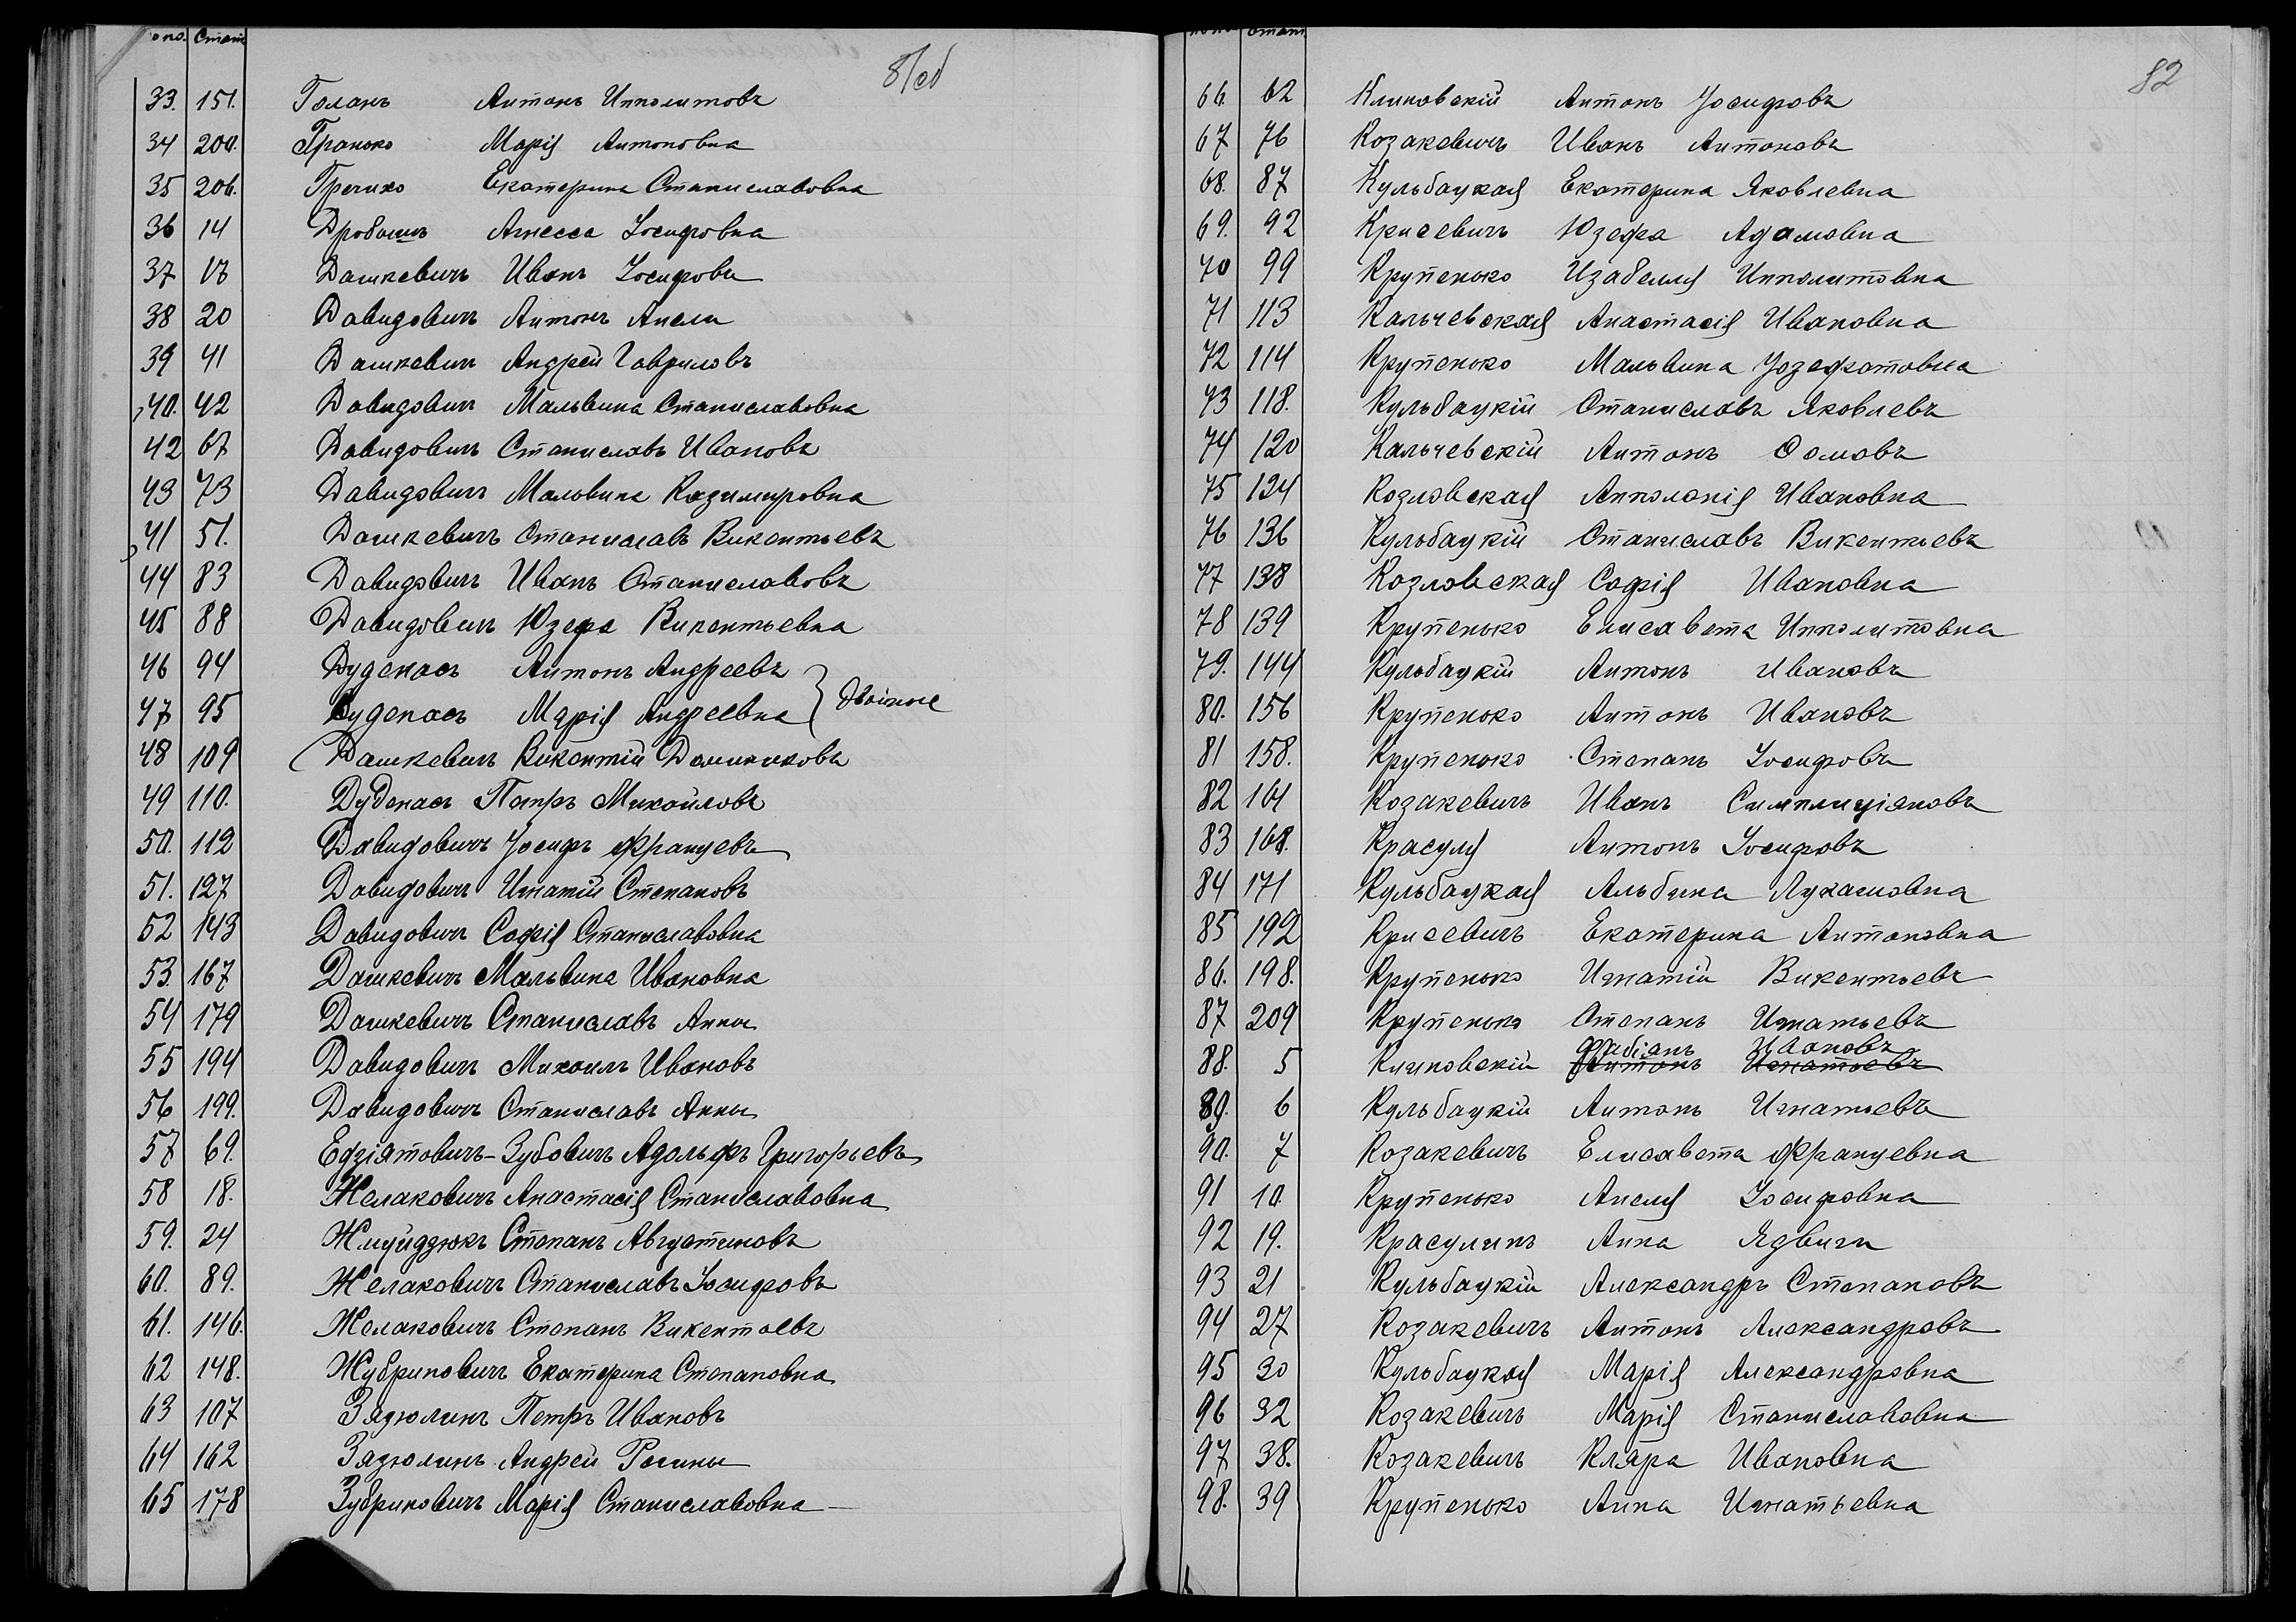 81об
33. 151.Голанъ Антонъ Ипполитовъ
34 200. Гранько Марія Антоновна
35 206. Гречихо Екатерина Станиславовна
36 14 Дробышъ Агнесса Іосифовна
37 17 Дашкевичъ Иванъ Іосифовъ
38 20 Давидовичъ Антонъ Анели
39 41 Дашкевичъ Андрей Гавриловъ
40. 42 Давидовичъ Мальвина Станиславовна
42 67 Давидовичъ Станиславъ Ивановъ
43 73 Давидовичъ Мальвина Казимировна
41 51. Дашкевичъ Станиславъ Викентьевъ
44 83 Давидовичъ Иванъ Станиславовъ
45 88 Давидовичъ Юзефа Викентьевна
46 94 Дуденасъ Антонъ Андреевъ
47 95 Дуденасъ Марія Андреевна } двойные
48 109 Дашкевичъ Викентій Доминиковъ
49 110. Дуденасъ Петръ Михайловъ
50. 112 Давидовичъ Іосифъ Францевъ
51. 127 Давидовичъ Игнатій Степановъ
52 143 Давидовичъ Софія Станиславовна
53. 167 Дашкевичъ Мальвина Ивановна
54 179 Дашкевичъ Станиславъ Анны
55 194 Давидовичъ Михаилъ Ивановъ
56 199. Давидовичъ Станиславъ Анны
57 69. Едзіятовичъ-Зубовичъ Адольфъ Григорьевъ
58 18. Желаковичъ Анастасія Станиславовна
59. 24 Жмуйдзюкъ Степанъ Августиновъ
60. 89. Желаковичъ Станиславъ Іосифовъ
61. 146. Желаковичъ Степанъ Викентьевъ
62 148. Жубриновичъ Екатерина Степановна
63 107 Зядюлинъ Петръ Ивановъ
64 162 Зядюлинъ Андрей Регины
65 178 Зубриновичъ Марія Станиславовна
82
66. 62 Климовскій Антонъ Іосифовъ
67 76 Козакевичъ Иванъ Антоновъ
68. 87 Кульбацкая Екатерина Яковлевна
69. 92 Крисевичъ Юзефа Адамовна
70 99 Крупенько Изабелля Ипполитовна
71 113 Кальчевская Анастасія Ивановна
72 114 Крупенько Мальвина Іозефатовна
73 118. Кульбацкій Станиславъ Яковлевъ
74 120 Кальчевскій Антонъ Ѳомовъ
75 124 Козловская Апполонія Ивановна
76 136 Кульбацкій Станиславъ Викентьевъ
77 138 Козловская Софія Ивановна
78 139 Крупенько Елисавета Ипполитовна
79. 144 Кульбацкій Антонъ Ивановъ
80. 156 Крупенько Антонъ Ивановъ
81 158. Крупенько Степанъ Іосифовъ
82 161 Козакевичъ Иванъ Симплиціановъ
83 168. Красуля Антонъ Іосифовъ
84 171 Кульбацкая Альбина Лукашовна
85 192 Крисевичъ Екатерина Антоновна
86. 198. Крупенько Игнатій Викентьевъ
87 209 Крупенько Степанъ Игнатьевъ
Фабіанъ Ивановъ
88. 5 Климовскій Антонъ Игнатьевъ
89. 6 Кульбацкій Антонъ Игнатьевъ
90. 7 Козакевичъ Елисавета Францевна
91 10. Крупенько Анеля Іосифовна
92 19. Красулинъ Анна Ядвиги
93 21 Кульбацкій Александръ Степановъ
94 27 Козакевичъ Антонъ Александровъ
95 30 Кульбацкая Марія Александровна
96 32 Козакевичъ Марія Станиславовна
97 38. Козакевичъ Кляра Ивановна
98. 39 Крупенько Анна Игнатьевна